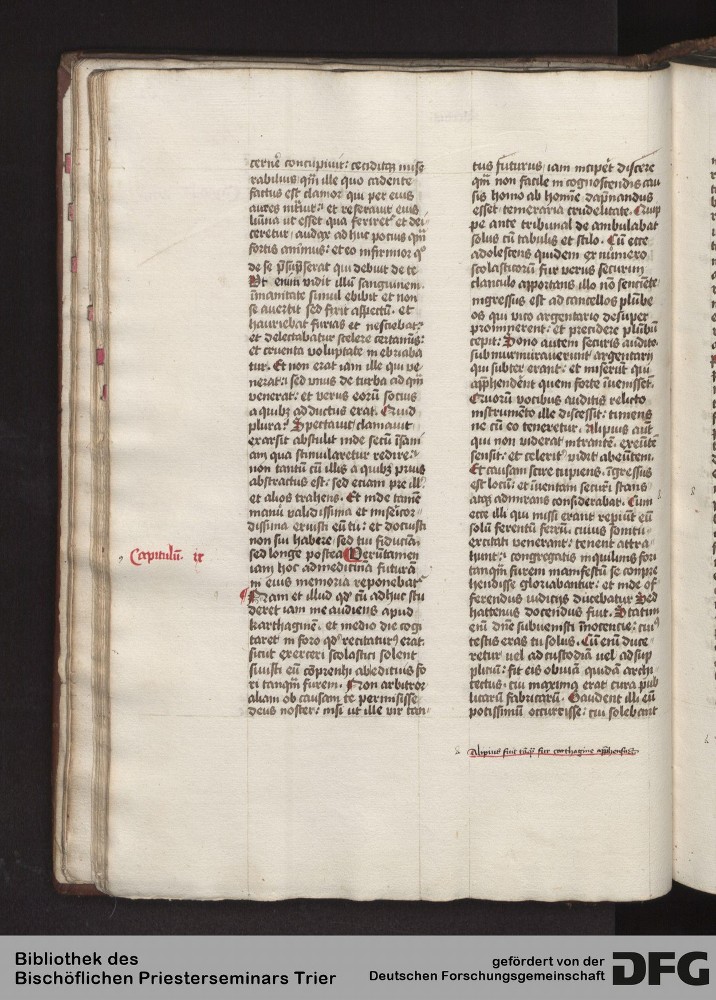 cerne͛ concupiuit: ceciditqꝫ mise
rabilius qm̄ ille quo cadente
factus est clamor qui per eius
aures intͣuit: et reserauit eius
lumina ut esset qua feriret͛ et dei
ceretur audax ad huc potius qm̄
fortis animus: et eo infirmior qͦ
de se p̄sūpserat qui debuit de te
Ut enim vidit illū sanguinem
īmanitate simul ebibit et non
se auertit sed fixit aspectū. et
hauriebat furias et nesciebat:
et delectabatur scelere certamīs:
et cruenta voluptate inebriaba
tur. Et non erat iam ille qui ve
nerat: sed vnus de turba ad qm̄
venerat: et verus eorū socius
a quibꝫ adductus erat. Quid
plura? Spectauit clamauit
exarsit abstulit inde secū īsani
am qua stimularetur redire:
non tantū cū illis a quibꝫ prius
abstractus est: sed etiam pre ill'
et alios trahens. Et inde tamē
manu validissima et misericor
dissima eruisti eū tu: et docuisti
non sui habere sed tui fiduciā
sed longe postea Verūtamen
iam hoc ad medicina futurā
in eius memoria reponebat͛
Nam et illud qd' cū adhuc stu
deret iam me audiens apud
karthaginē. et medio die cogi
taret in foro qd' recitatur͛ erat.
sicut exerceri scolastici solent
siuisti eū cōprenhi ab edituis fo
ri tanqm̄ furem. Non arbitror
aliam ob causam te permisisse
deus noster: nisi ut ille vir tan
Capitulū. ix
tus futurus iam incipet͛ discere
qm̄ non facile in cognoscendis cau
sis homo ab homīe dapnandus
esset temeraria crudelitate. Quip
pe ante tribunal de ambulabat
solus cū tabulis et stilo. Cū ecce
adolescens quidem ex numero
scolasticorū fur verus securim
clanculo apportans illo nō sentiēte
ingressus est ad cancellos plūbe
os qui vico argentario desuper
prominerent: et precidere plūbū
cepit: Sono autem securis audito
submurmurauerunt argentarii
qui subter erant: et miserūt qui
app̄henderēt quem forte īuenissēt.
Quorū vocibus auditis relicto
instrumēto ille discessit: timens
ne cū eo teneretur. Alipius aūt
qui non viderat intrantē. exeūtē
sensit: et celerit͛ vidit abeūtem.
Et causam scire cupiens. īgressus
est locū: et īuentam securī stans
atqꝫ admirans considerabat. Cum
ecce illi qui missi erant reperiūt eū
solū ferentū ferrū. cuius sonitu
excitati venerant: tenent attra
hunt: congregatis inquilinis fori
tanqm̄ furem manifestū se compre
hendisse gloriabantur: et inde of
ferendus iudicijs ducebatur Sed
hattenus docendus fuit. Statim
eni͛ dn̄e subuenisti īnocentie: cui'
testis eras tu solus. Cū eni͛ duce
retur uel ad custodiā uel ad sup
pliciū: fit eis obuiā quidā archi
tectus. cui maxima erat cura pub
licarū fabricarū. Gaudent illi eū
potissimū occurrisse: cui solebant
Alipius fuit tāqꝫ fur carthagine app̄hensus
Bibliothek des
Bischöflichen Priesterseminars Trier
gefördert von der
Deutschen Forschungsgemeinschaft
DFG